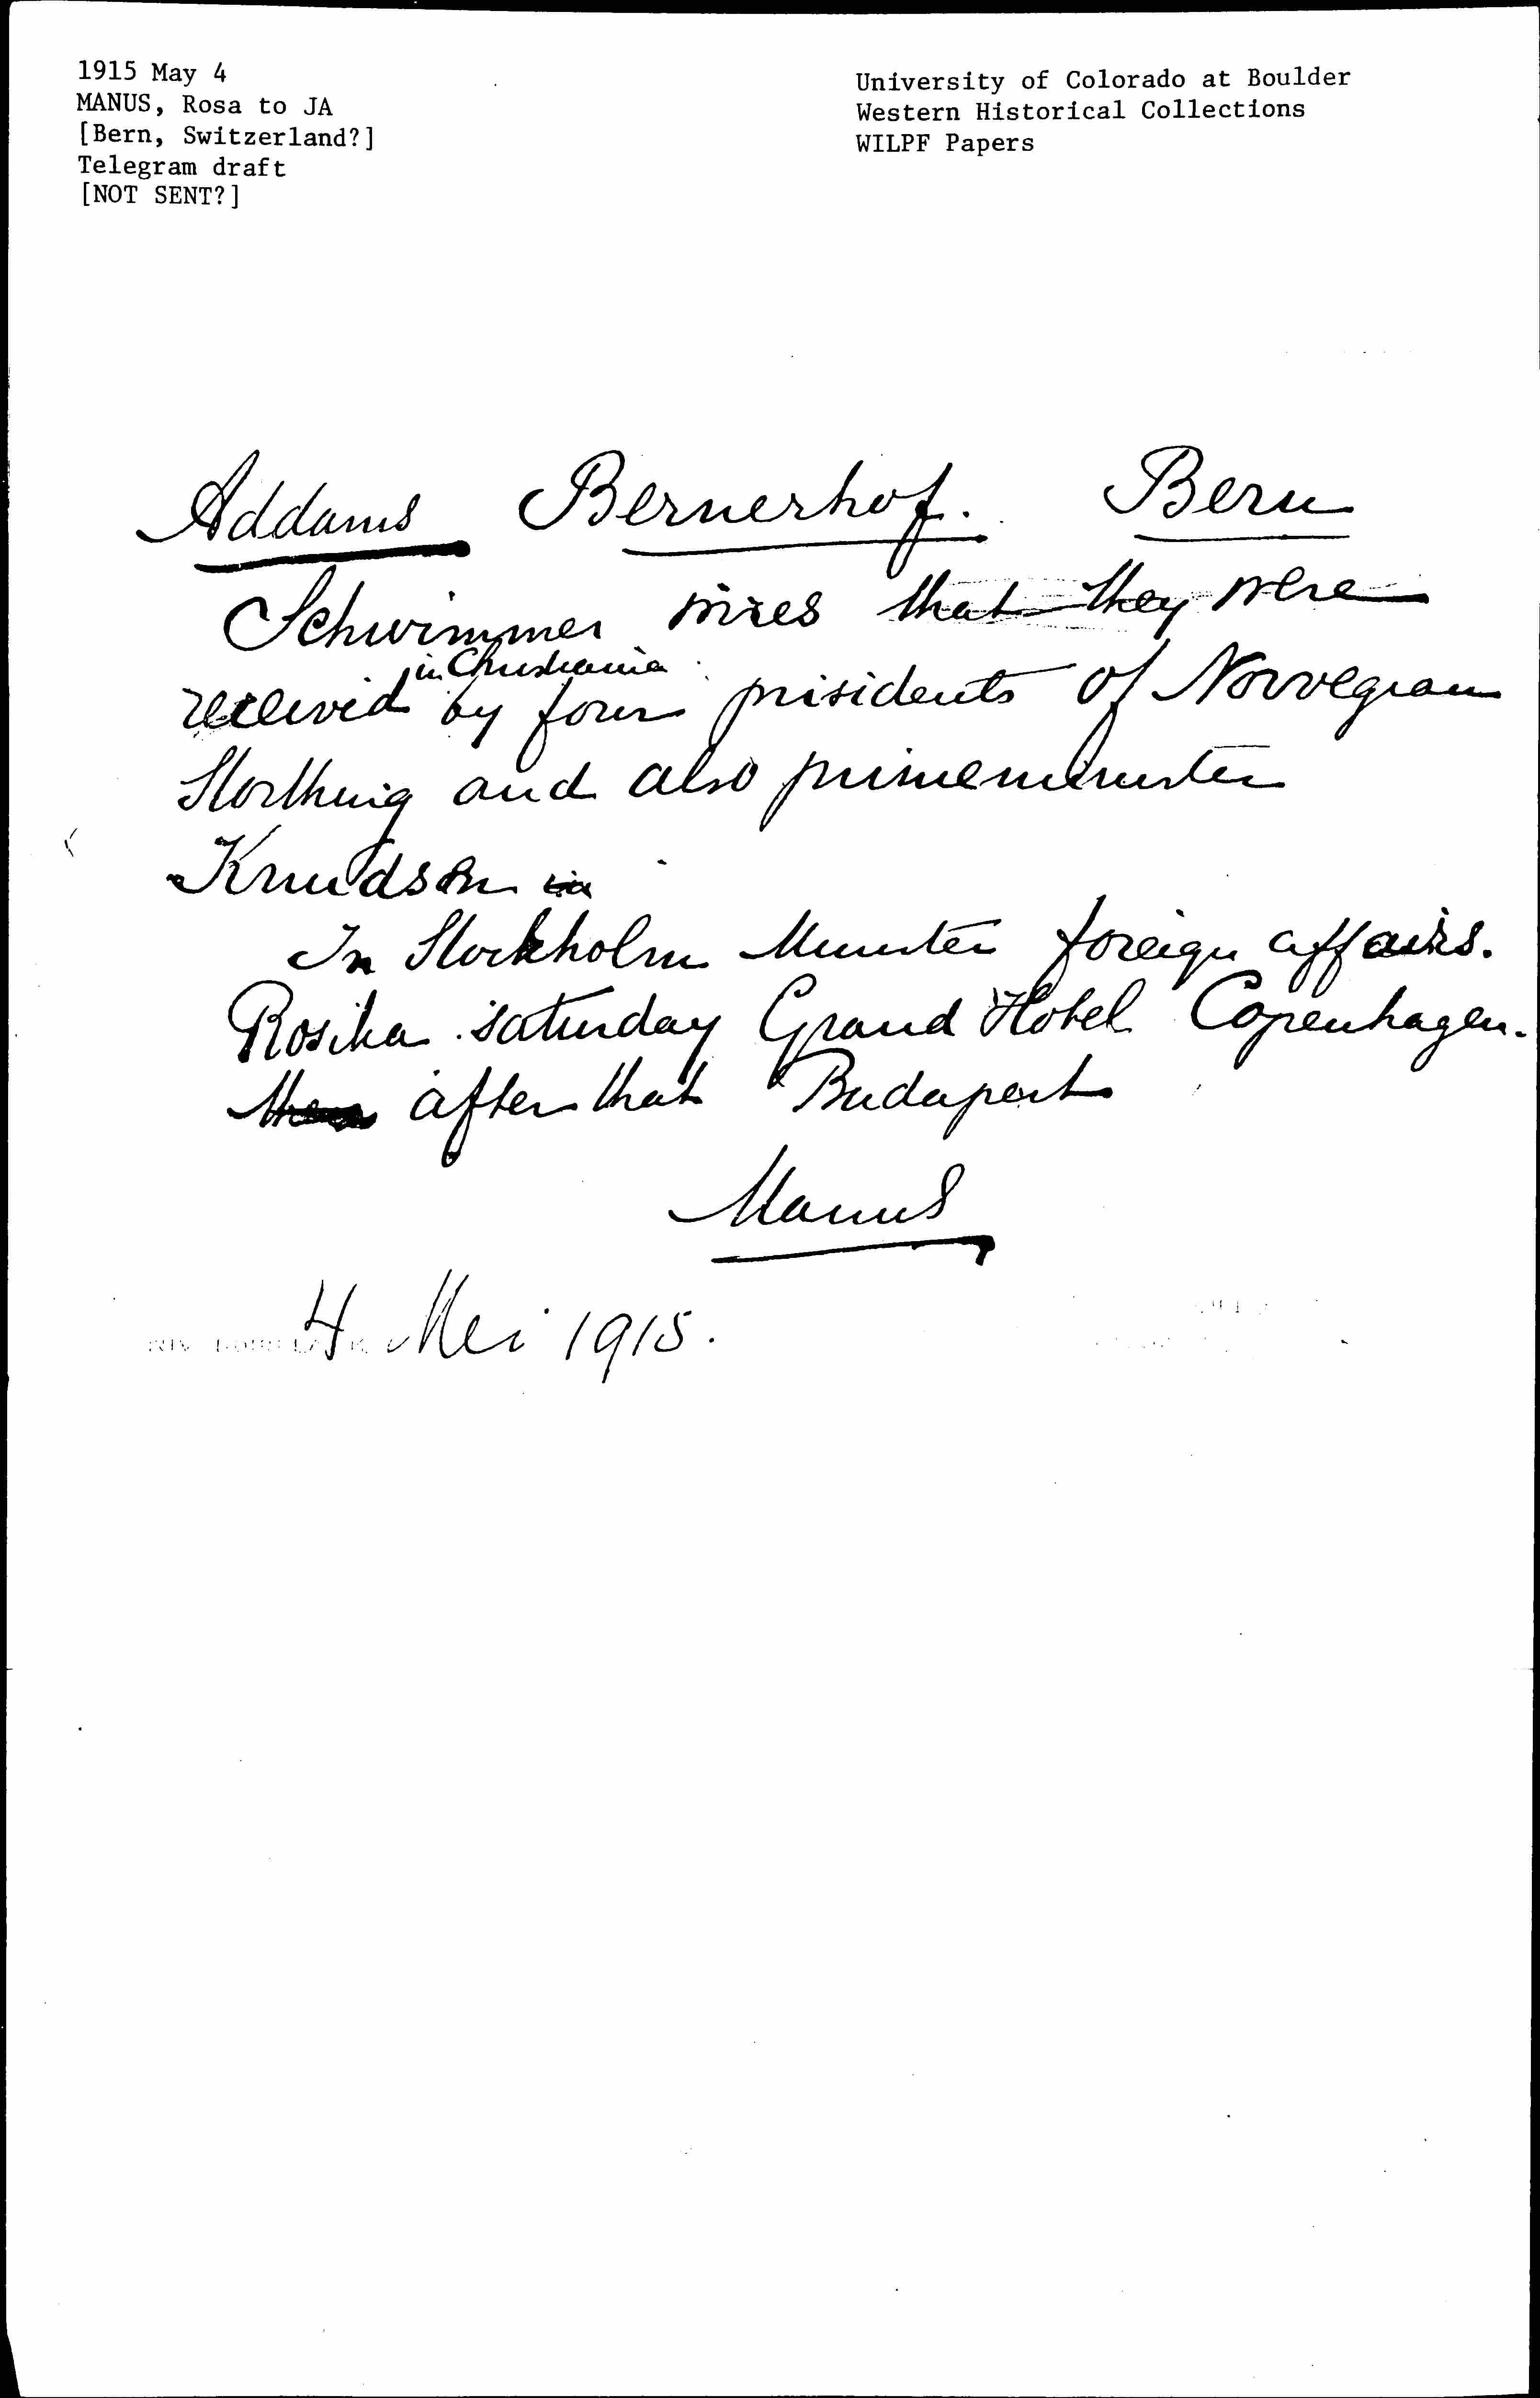 1915 May 4
MANUS, Rosa to JA
[Bern, Switzerland?]
Telegram draft
[NOT SENT?]
University of Colorado at Boulder
Western Historical Collections
WILPF Papers
Addams Bernerhof. Bern
Schwimmer wires that they were
in Christiania
received by four prisidents of Norvegian
Storthing and also primeminister
Knudsen in
In Stockholm Minister foreign affairs.
Rosika saturday Grand Hotel Copenhagen.
then after that Budapest
Manus
4 Mei 1915.